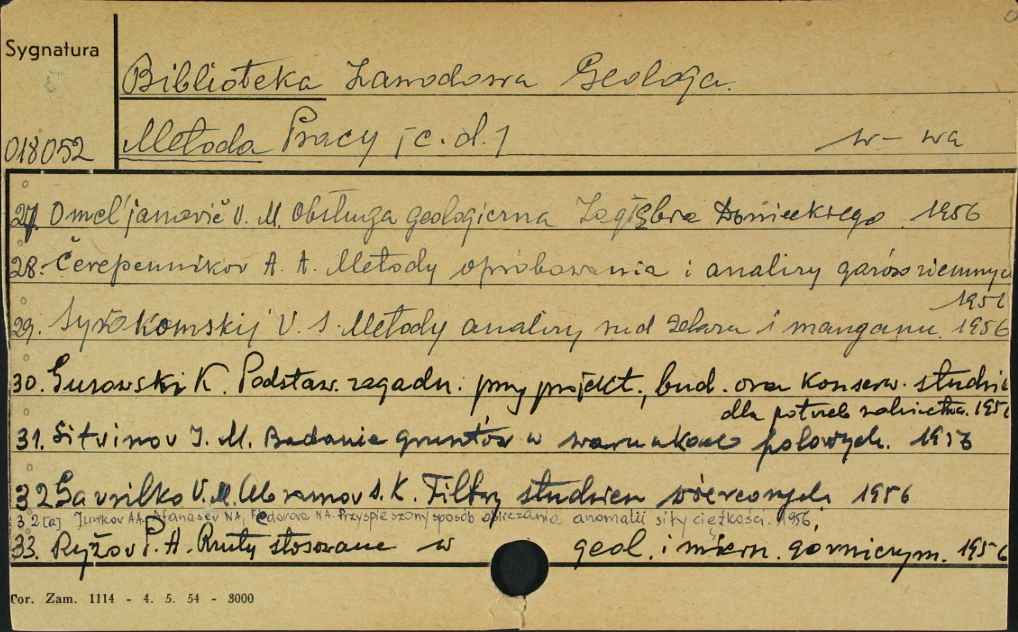 Sygnatura
Biblioteka Zawodowa Geologa.
018052
Metoda Pracy [c.d.] W-wa
27. Omel'janovič V. M. Obsługa geologiczna Zagłębia Donieckiego. 1956
28. Čerepennikov A. A. Metody opróbowania i analizy gazów ziemnych
1956
29. Syrokomskij V. S. Metody analizy rud żelaza i manganu. 1956
30. Gurowski K. Podstaw. zagadn. przy projekt., bud. oraz konserw. studzien
dla potrzeb rolnictwa. 1956
31. Litvinov I. M. Badanie gruntów w warunkach polowych. 1956
32 Gavrilko V. M. Abramov S. K. Filtry studzien wierconych 1956
32[a] Jun'kov A.A. Afanas'ev N.A, Fedorova N.A. Przyspieszony sposób obliczania anomalii siły ciężkości. 1956,
33. Ryžov P. A. Rzuty stosowane w geol. i miern. górniczym. 1956
Cor. Zam. 1114 - 4. 5. 54 - 3000